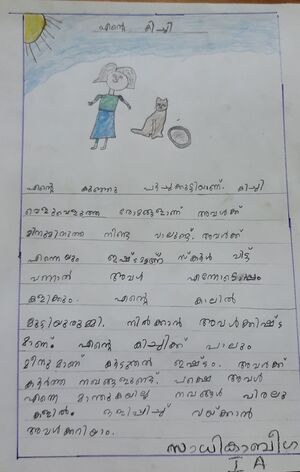 എന്റെ കിച്ചി
എന്റെ കുഞ്ഞു പൂച്ചക്കുട്ടിയാണ്. കിച്ചി
വെളുവെളുത്ത രോമങ്ങളാണ് അവൾക്ക്
മിനുമിനുത്ത നീണ്ട വാലുണ്ട്. അവൾക്ക്
എന്നെയും ഇഷ്ടമാണ് സ്കൂൾ വിട്ട്
വന്നാൽ അവൾ എന്നോടൊപ്പം
കളിക്കും. എന്റെ കാലിൽ
മുട്ടിയുരുമ്മി. നിൽക്കാൻ അവൾക്കിഷ്ട
മാണ്. എന്റെ കിച്ചിക്ക് പാലും
മീനുമാണ് കൂടുതൽ ഇഷ്ടം. അവൾക്ക്
കൂർത്ത നഖങ്ങളുണ്ട്. പക്ഷെ അവൾ
എന്നെ മാന്തുകയില്ല നഖങ്ങൾ വിരലു
കളിൽ. ഒളിപ്പിച്ച് വയ്ക്കാൻ
അവൾക്കറിയാം.
സാധികാബീഗ
I A